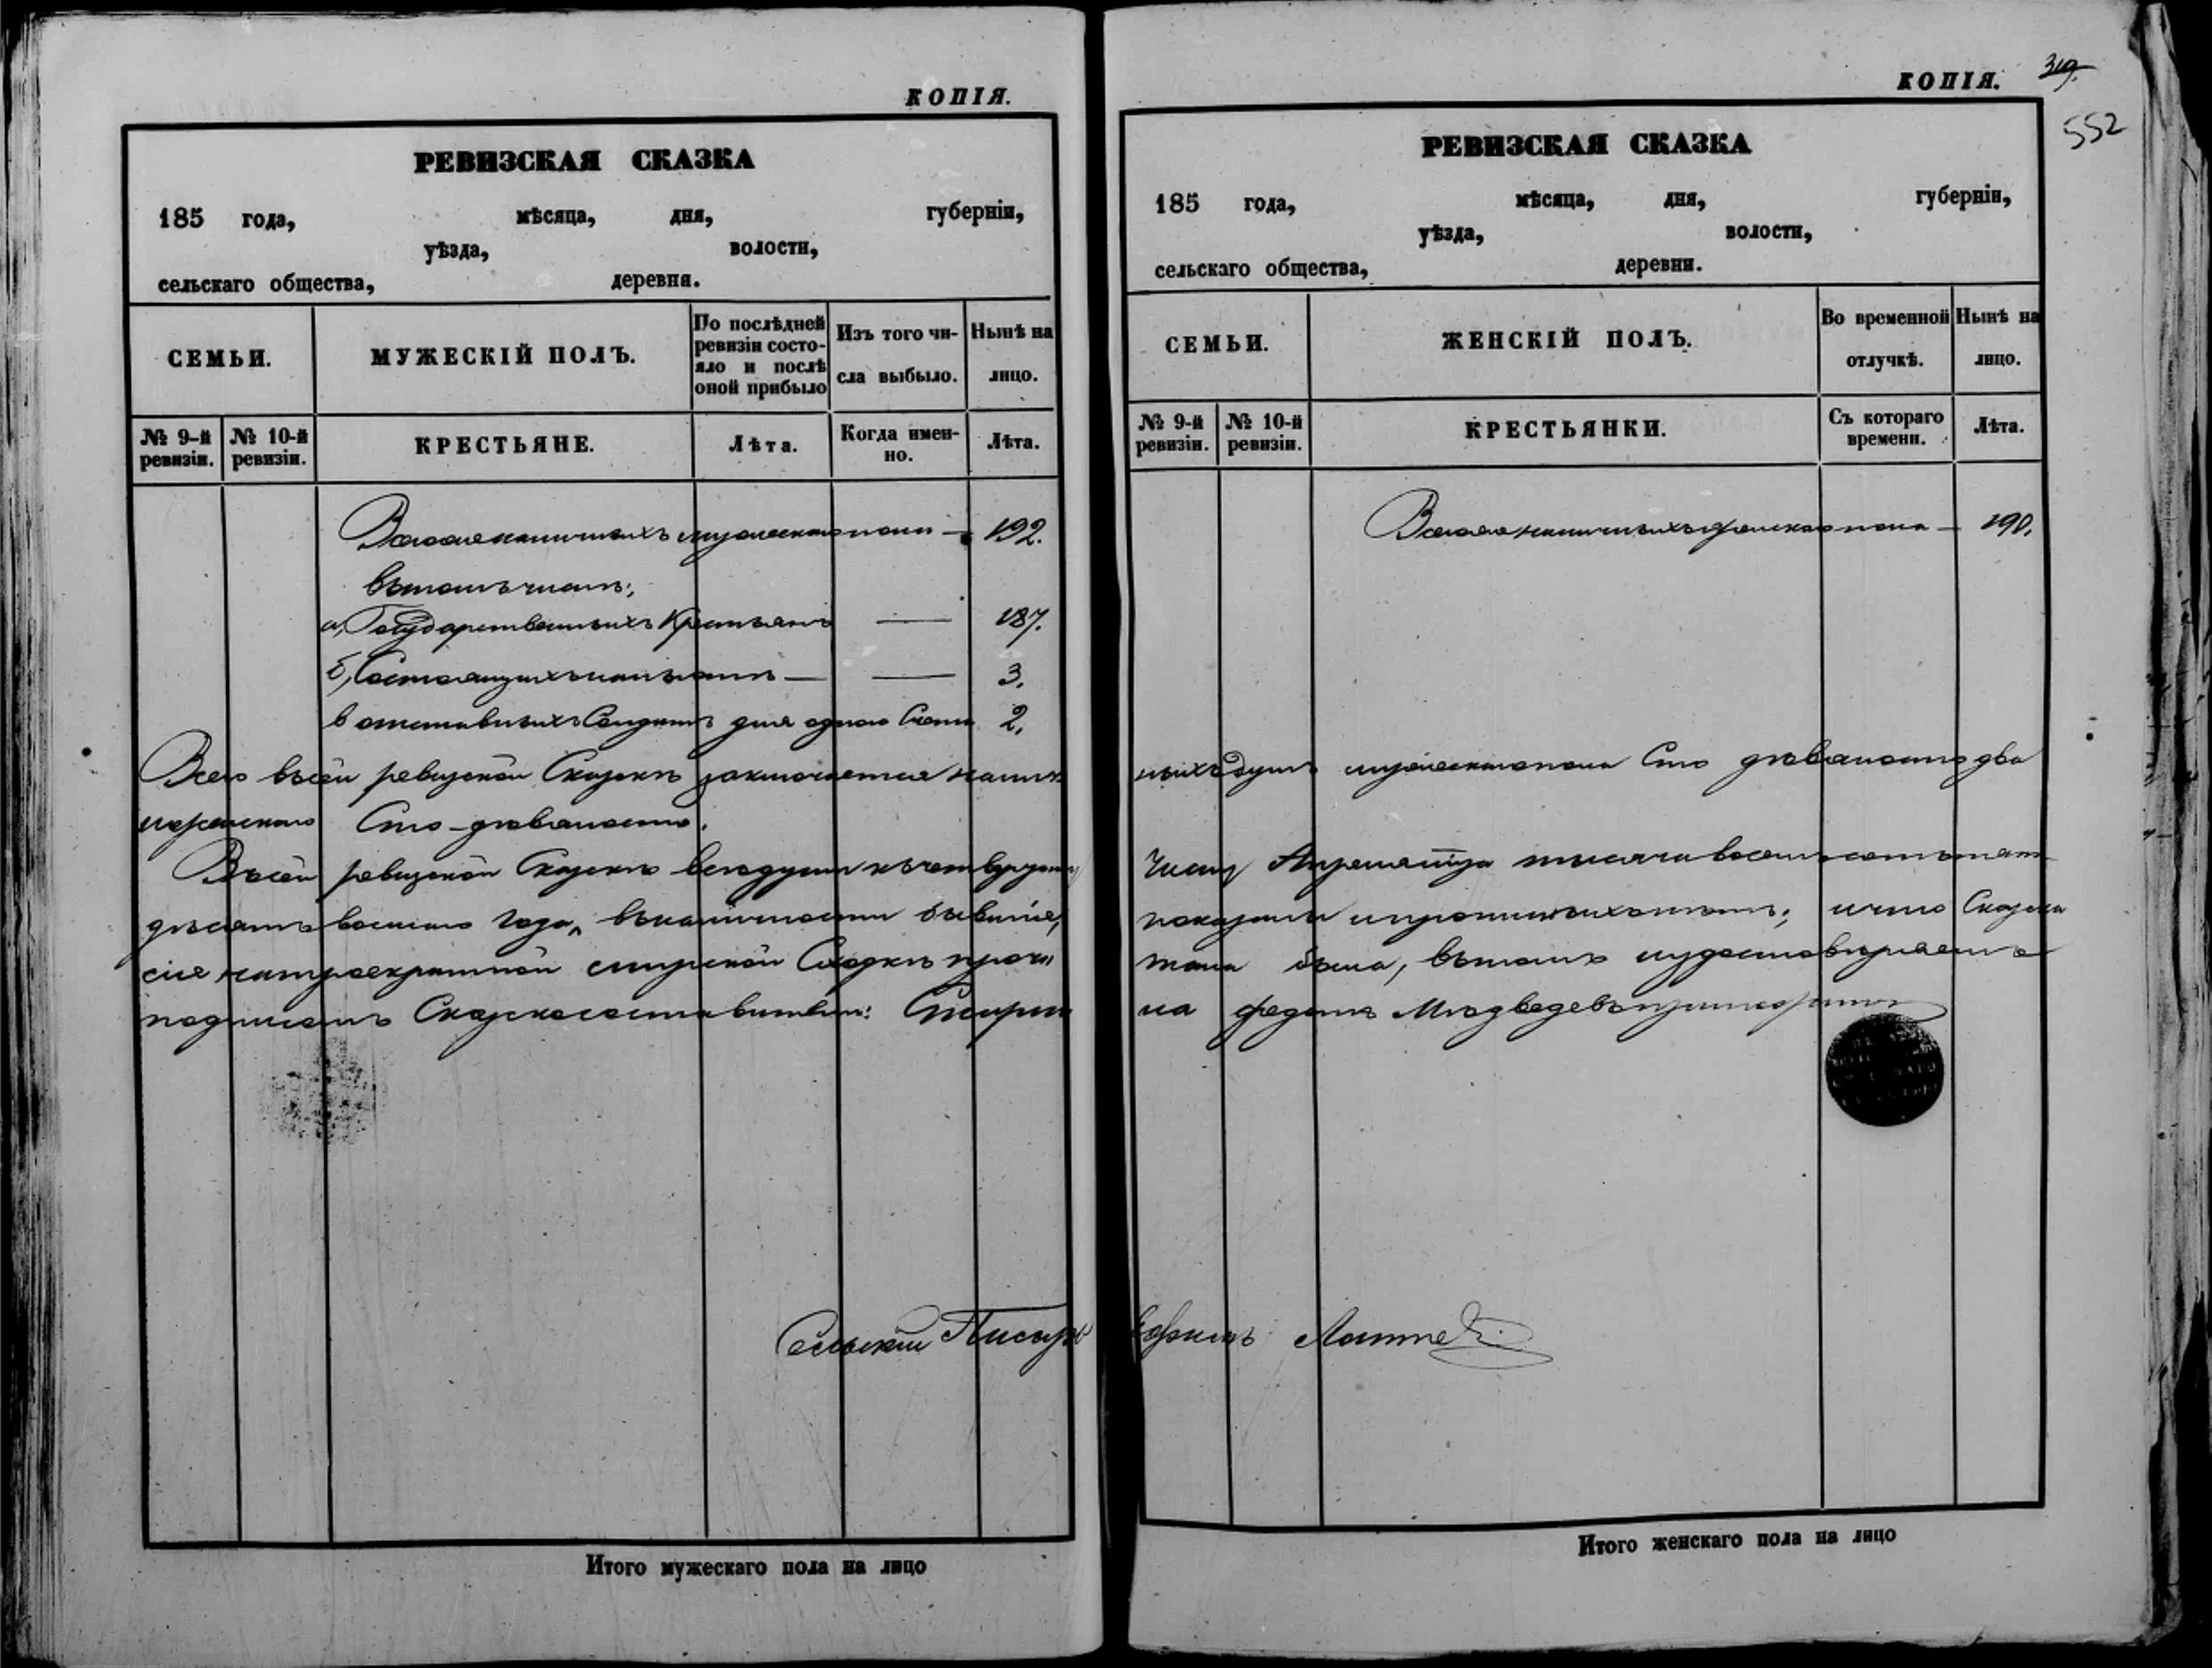 КОПІЯ.
РЕВИЗСКАЯ СКАЗКА
185 года, мѣсяца, дня, губерніи,
уѣзда, волости,
сельскаго общества, деревни.
СЕМЬИ.
МУЖЕСКІЙ ПОЛЪ.
По послѣдней
ревизіи состо-
яло и послѣ
оной прибыло
Изъ того чи-
сла выбыло.
Нынѣ на
лицо.
№ 9-й
ревизіи.
№ 10-й
ревизіи.
КРЕСТЬЯНЕ.
Лѣта.
Когда имен-
но.
Лѣта.
Всего наличныхъ мужескаго пола — 192.
въ томъ числѣ;
а, Государственныхъ Крестьянъ — 187.
б, Состоящихъ на — 3.
в отставныхъ Солдатъ для одного Счета 2.
Всего въ сей ревизской Сказкѣ заключается налич
и женскаго Сто-девяносто.
Въ сей ревизской Сказкѣ всѣ души къ четвертому
десятъ восьмаго года, въ наличности бывшіе,
сіе на троекратной мирской Сходкѣ прочи
подписомъ Сказкосоставитель:
Сельскій Писарь
КОПІЯ.
319.
552
РЕВИЗСКАЯ СКАЗКА
185 года, мѣсяца, дня, губерніи,
уѣзда, волости,
сельскаго общества, деревни.
СЕМЬИ.
ЖЕНСКІЙ ПОЛЪ.
Во временной
отлучкѣ.
Нынѣ на
лицо.
№ 9-й
ревизіи.
№ 10-й
ревизіи.
КРЕСТЬЯНКИ.
Съ котораго
времени.
Лѣта.
Всего наличныхъ женскаго пола — 190.
ныхъ душъ мужескаго пола Сто девяносто два
Числу Апрѣля тысяча восемьсотъ пять
показаны и пропущенныхъ нѣтъ; и что Сказка
тана была, въ томъ и удостовѣряемъ
на Федотъ Медведевъ
Итого мужескаго пола на лицо
Итого женскаго пола на лицо